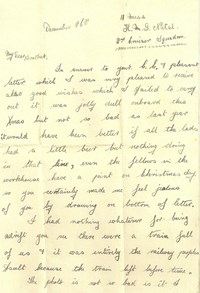 December 28th
A Mess
H.M.S.
2nd Cruiser Squadron
My Dear
In answer to your & pleasant
letter which I was very pleased to receive
also good wishes which I failed to wry
out it was jolly dull onboard this
Xmas but not so bad as last year
It would have been better if all the lads
had a little beer but nothing doing
in that line, even the fellows in the
workhouse have a pint on Christmas day
so you certainly made me feel jealous
of you by drawing on bottom of letter.
I had nothing whatever for being
adrift you see there were a train full
of us & it was entirely the railway peoples
fault because the train left before time.
The photo is not so bad is it I